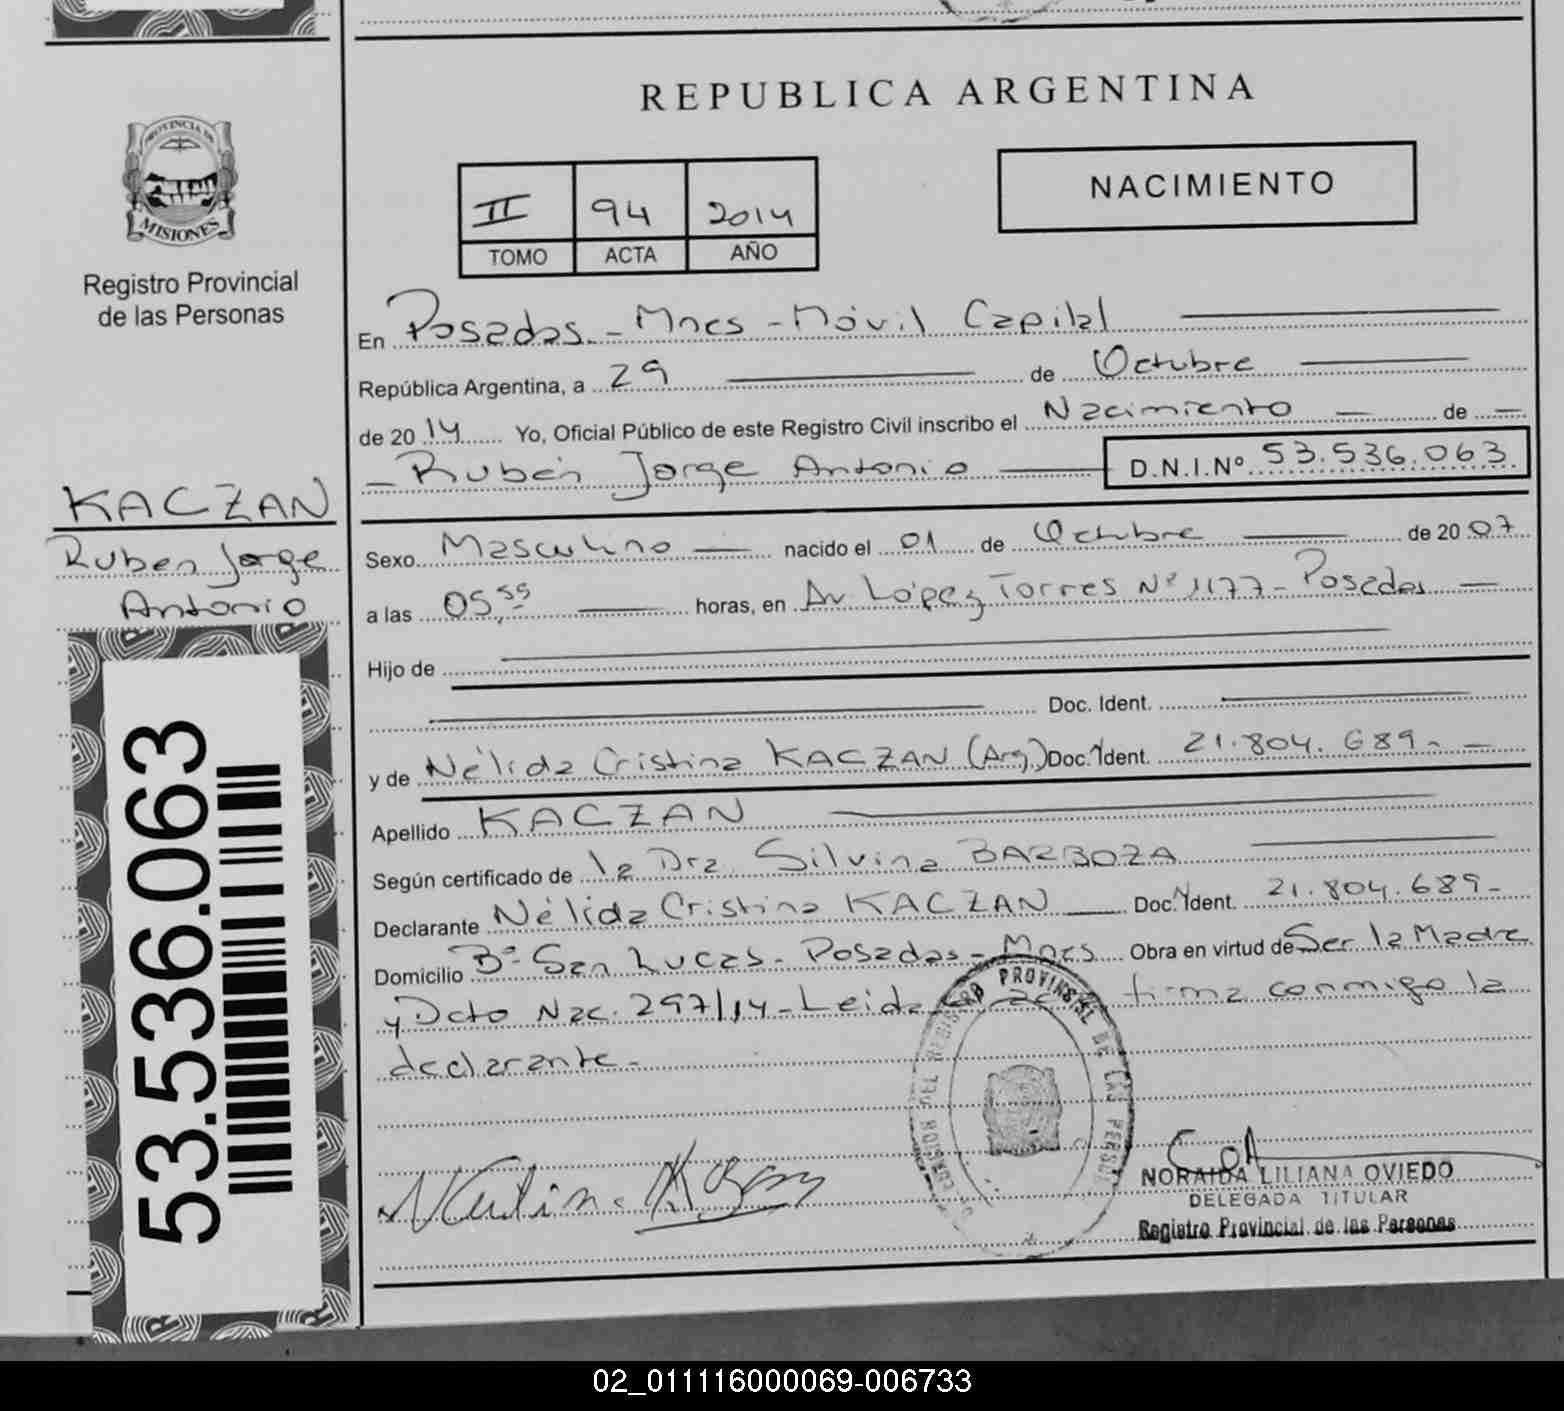 REPUBLICA ARGENTINA
PROVINCIA DE
MISIONES
Registro Provincial
de las Personas
II 94 2014
TOMO ACTA AÑO
NACIMIENTO
En Posadas - Mnes - Móvil Capital
República Argentina, a 29 de Octubre
de 2014 Yo, Oficial Público de este Registro Civil inscribo el Nacimiento de
Rubén Jorge Antonio D.N.I.Nº 53.536.063
KACZAN
Ruben Jorge
Antonio
53.536.063
Sexo Masculino nacido el 01 de Octubre de 2007
a las 05,55 horas, en Av López Torres Nº 1177 - Posadas
Hijo de
Doc. Ident.
y de Nélida Cristina KACZAN (Arg) Doc. Ident. 21.804.689-
Apellido KACZAN
Según certificado de la Dra. Silvina BARBOZA
Declarante Nélida Cristina KACZAN Doc. Ident. 21.804.689-
Domicilio Bº San Lucas - Posadas - Mnes Obra en virtud de Ser la Madre
y Dcto Nac. 297/14 - Leida firma conmigo la
declarante -
NORAIDA LILIANA OVIEDO
DELEGADA TITULAR
Registro Provincial de las Personas
02_011116000069-006733